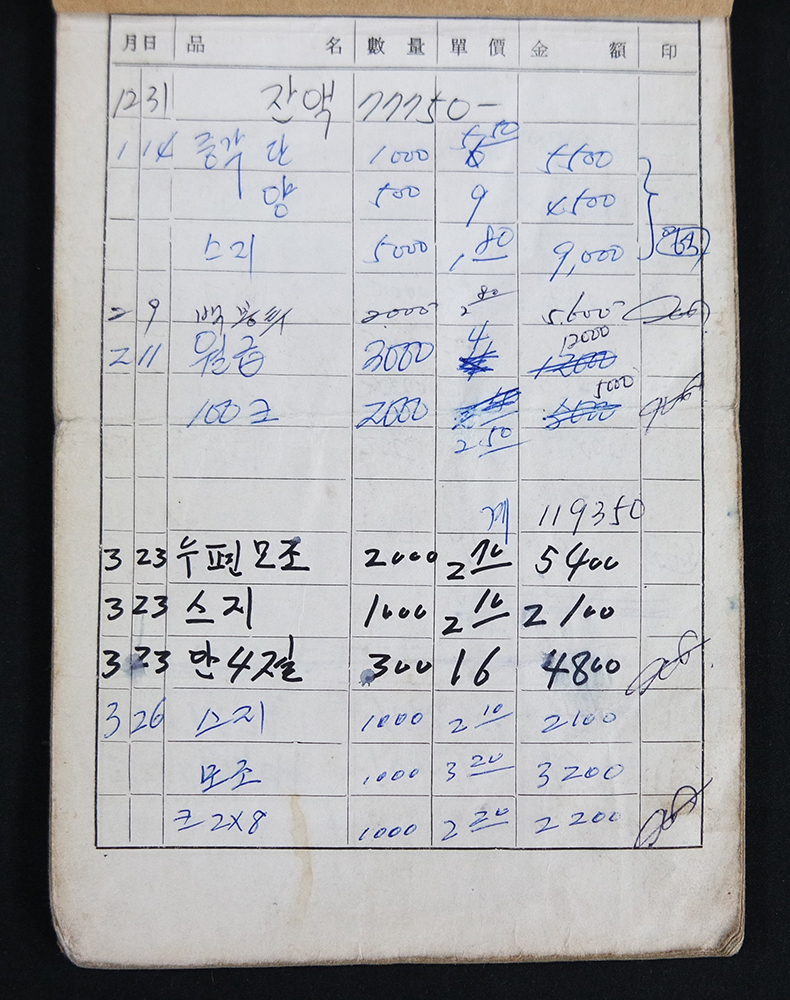 月 日 品 名 數 量 單 價 金 額 印
12 31 잔액 77750-
1 14 중각 단 1000 5.50 5500
양 500 9 4500
스지 5000 1.80 9,000
2 9 2000 2 80 5.600-
2 11 월급 3000 4 12000
100 크 2000 2.50 5000
계 119350
3 23 누편모조 2000 2 70 5400
3 23 스지 1000 2 10 2100
3 23 만4절 300 16 4800
3 26 스지 1000 2 10 2100
모조 1000 3 20 3200
크 2x8 1000 2 20 2200